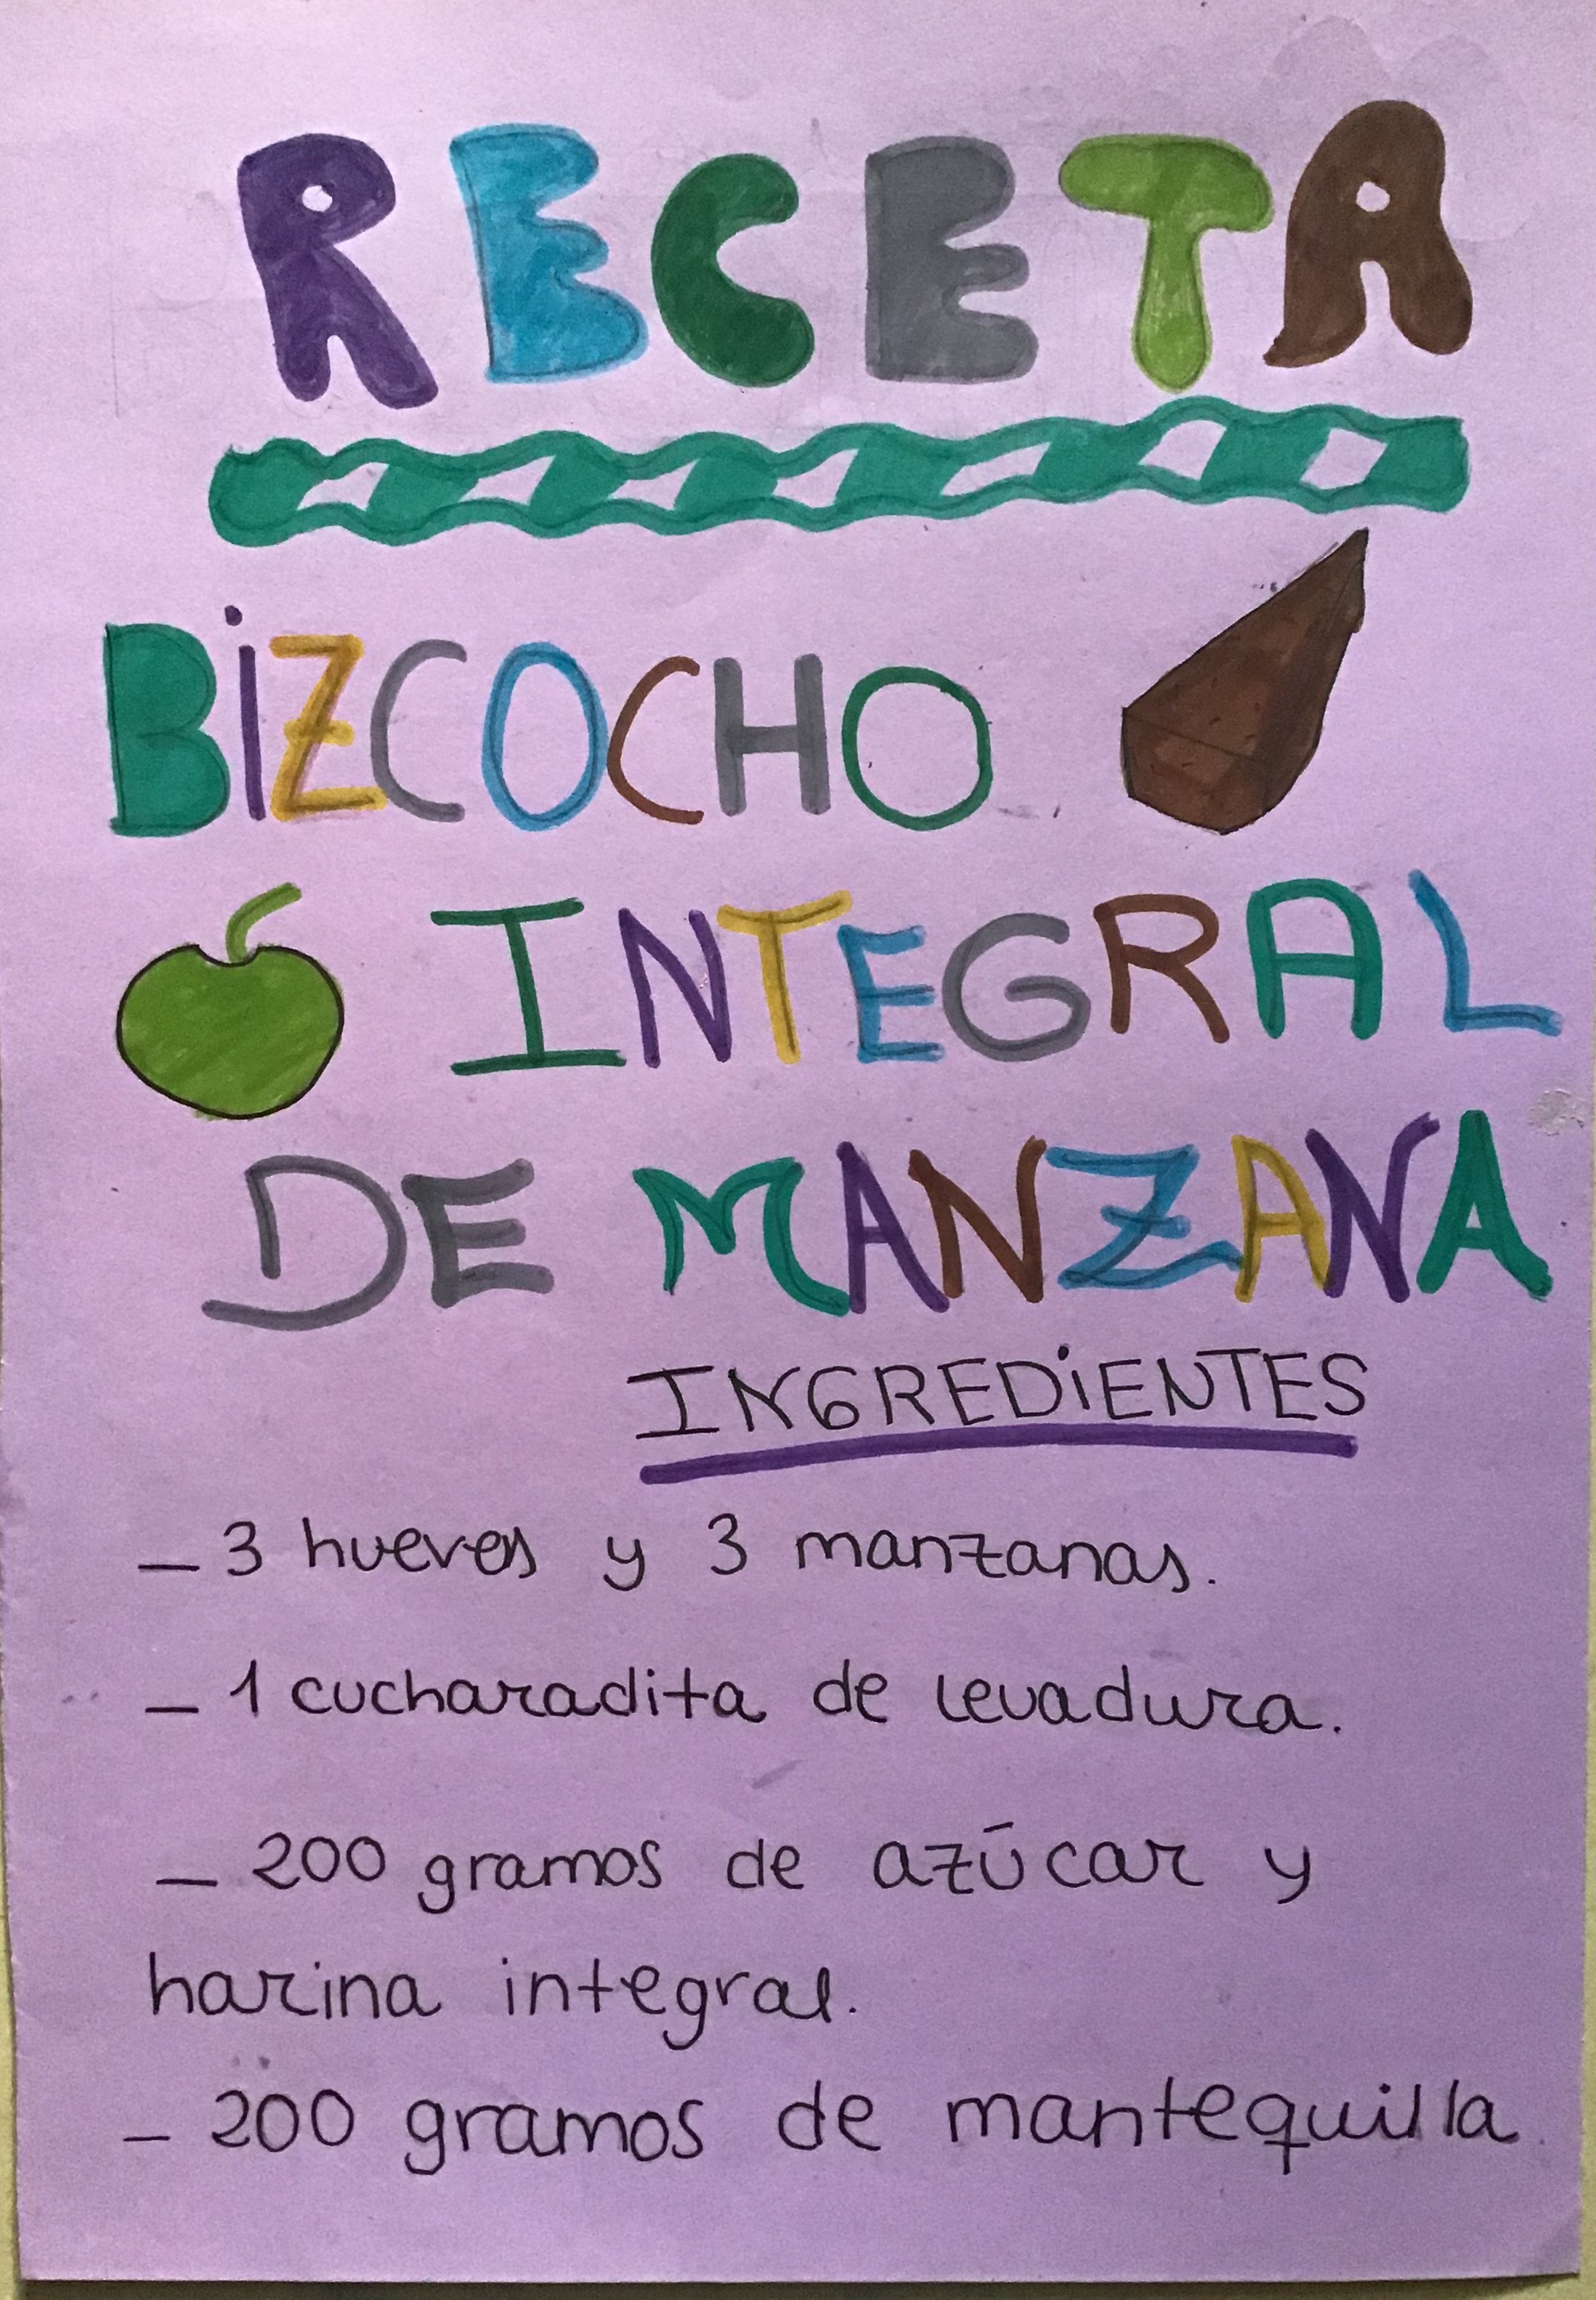 RECETA
BiZCOCHO
INTEGRAL
DE MANZANA
INGREDiENTES
_ 3 huevos y 3 manzanas.
_ 1 cucharadita de levadura.
_ 200 gramos de azúcar y
harina integral.
_ 200 gramos de mantequilla.